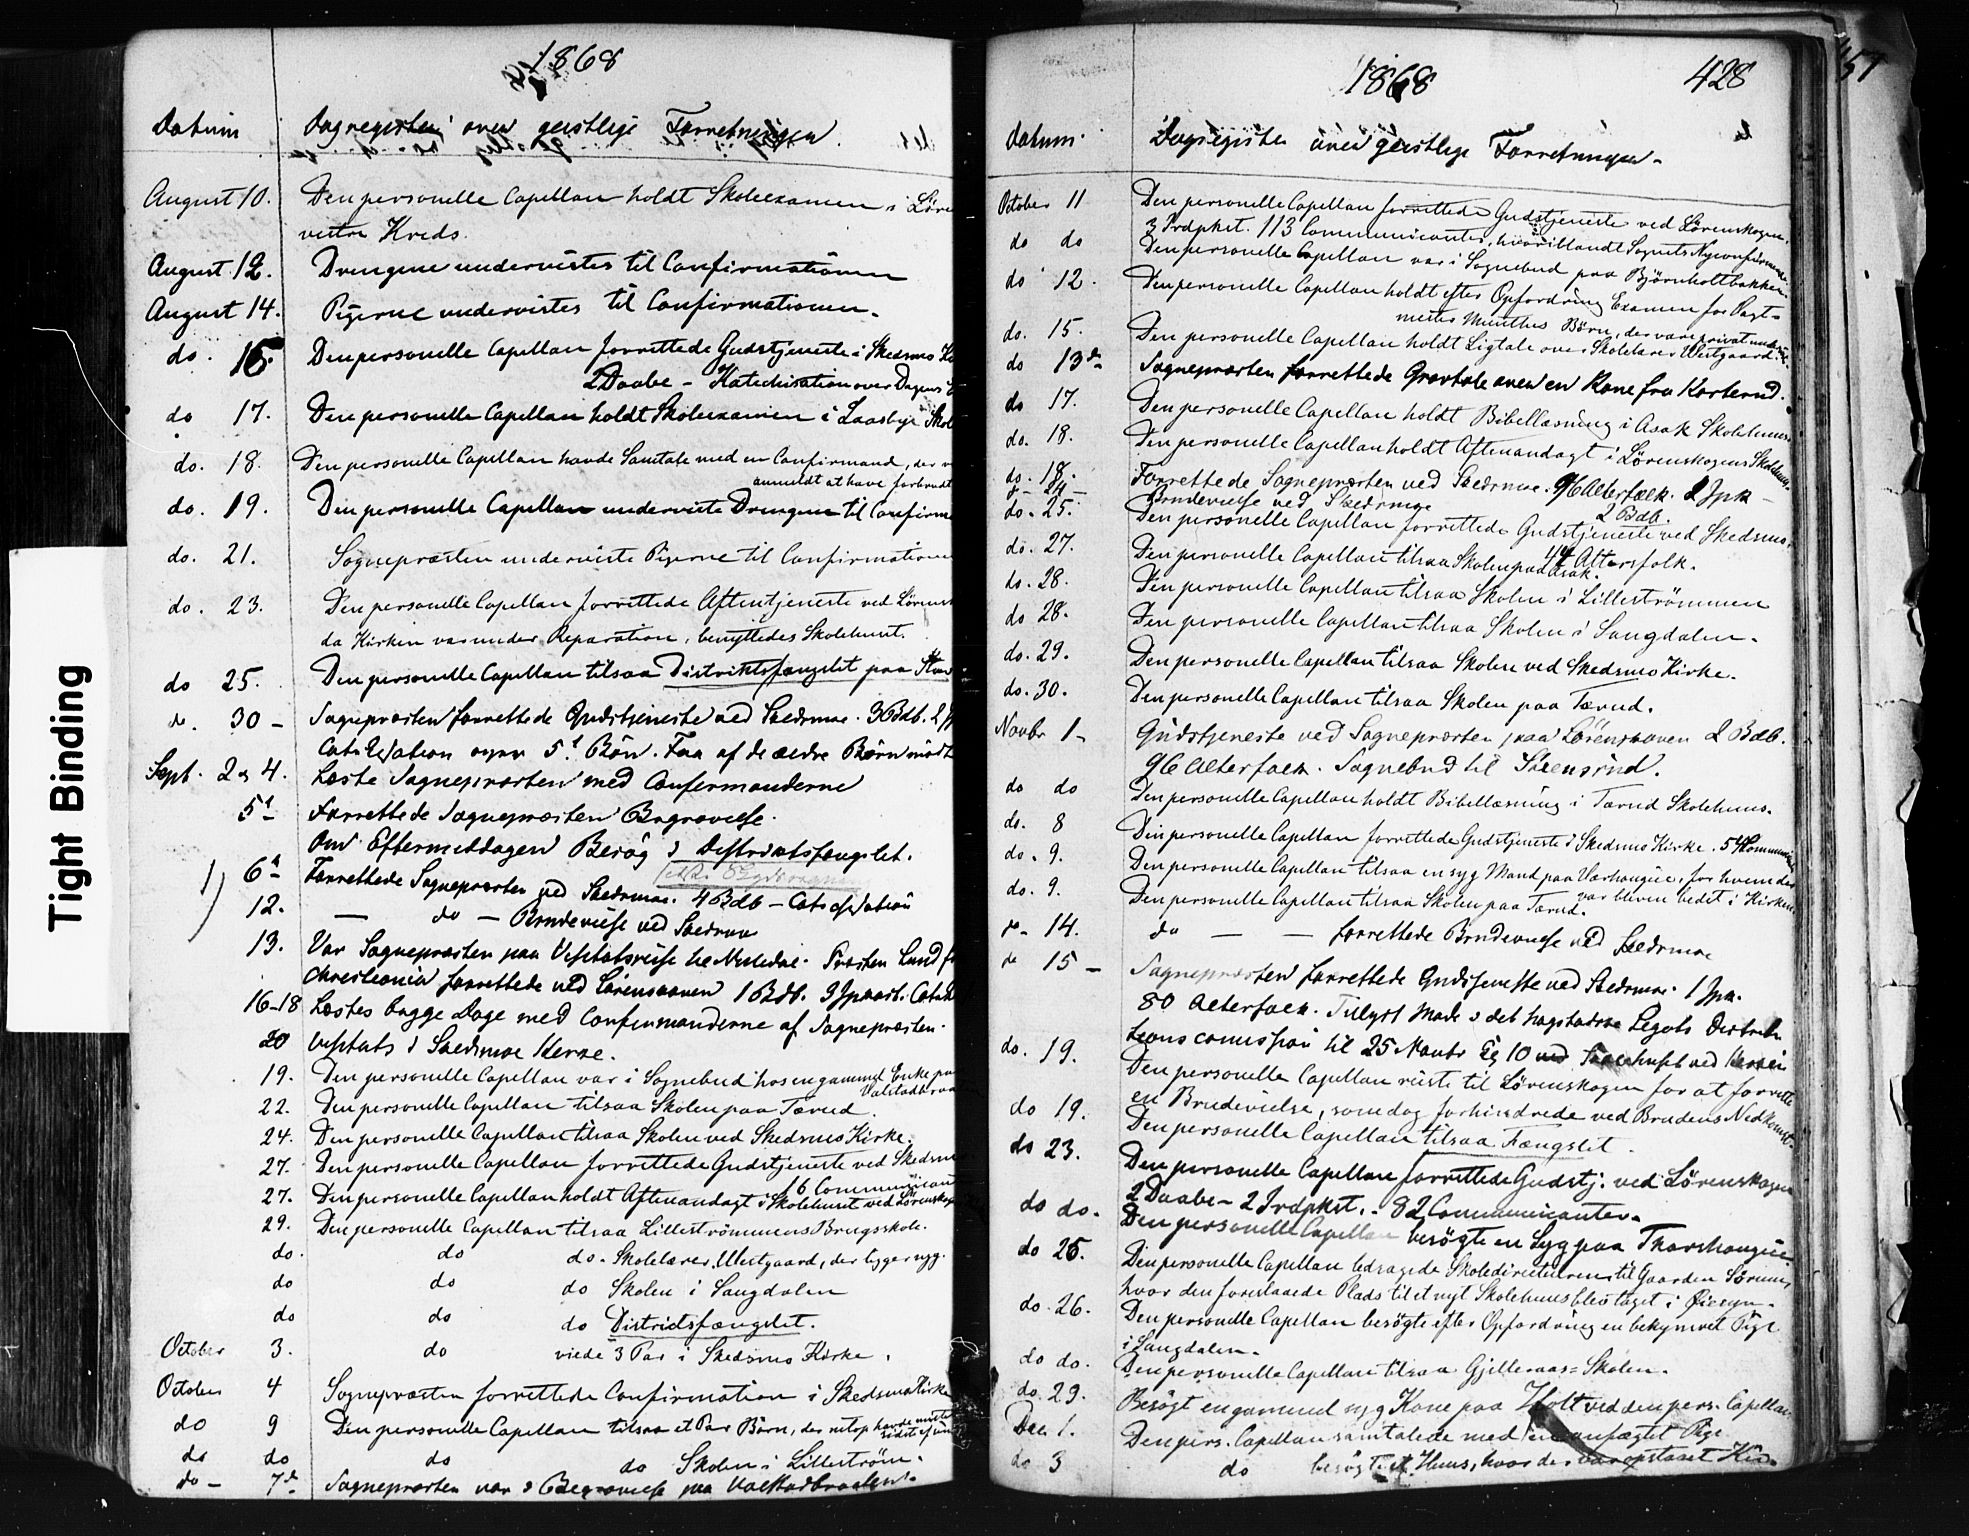 Tight Binding
1868
Datum
Dagregister over geistlige Forretninger
August 10. Den personelle Capellan holdt Skoleexamen i Løre
vestre Kreds.
August 12. Drengene undervistes til Confirmationen
August 14. Pigerne undervistes til Confirmationen.
do. 16. Den personelle Capellan forrettede Gudstjeneste i Skedsmo
2 Daabe - Katechisation over Dagens
do 17. Den personelle Capellan holdt Skoleexamen i Laasby Skol
do. 18. Den personelle Capellan havde Samtale med en Confirmand, der
anmeldt at have forbrudt
do. 19. Den personelle Capellan underviste Drengene til Confirm
do. 21. Sognepræsten underviste Pigerne til Confirmationen
do. 23. Den personelle Capellan forrettede Aftentjeneste ved Lørensk
da Kirken var under Reparation, benyttedes Skolehuset.
do 25. Den personelle Capellan tilsaa Distriktsfængslet paa
do. 30 - Sognepræsten forrettede Gudstjeneste ved Skedsmoe. 3 Bdb. 2
Catechisation over 5t Bøn. Faa af de ældre Børn mødt
Sept. 2 og 4. Læste Sognepræsten med Confirmanderne
5t Forrettede Sognepræsten Begravelse.
Om Eftermiddagen Besøg i Distriktsfængslet.
6t Forrettede Sognepræsten ved Skedsmoe. 4 Bdb - Catechisation
12. — do — Brudevielse ved Skedsmoe
13. Var Sognepræsten paa Visitatsreise til Næsedal. Præsten Lund fr
Christiania forrettede ved Lørenskoven 1 Bdb. 3 Jpaast. Catech
16-18 Læstes begge Dage med Confirmanderne af Sognepræsten.
20 Visitats i Skedsmoe Kirke.
19. Den personelle Capellan var i Sognebud hos en gammel Enke paa
Valstadbraa
22. Den personelle Capellan tilsaa Skolen paa Tærud.
24. Den personelle Capellan tilsaa Skolen ved Skedsmo Kirke.
27. Den personelle Capellan forrettede Gudstjeneste ved Skedsmo
16 Communicant
27. Den personelle Capellan holdt Aftenandagt i Skolehuset ved Lørenskog
29. Den personelle Capellan tilsaa Lillestrømmens Brugsskole.
do. do do. Skolelærer Westgaard, der ligger syg.
do do do Skolen i Sangdalen
do do do Districtsfængslet.
October 3. do viede 3 Par i Skedsmo Kirke.
October 4 Sognepræsten forrettede Confirmation i Skedsmo Kirke
do 9 Den personelle Capellan tilsaa et Par Børn, der netop havde mistet
do do do do Skolen i Lillestrøm.
do - 7de Sognepræsten var i Begravelse paa Valstadbraaten.
1868
428
457
Datum.
Dagregister over geistlige Forretninger
October 11 Den personelle Capellan forrettede Gudstjeneste ved Lørenskogen.
3 Irdpkst. 113 Communicanter, hvoriblandt Sognets Nyconfirmerede
do do Den personelle Capellan var i Sognebud paa Bjørnholtbakken.
do 12. Den personelle Capellan holdt efter Opfordring Examen for Vagt-
mester Munthes Børn, der vare privat underviste
do. 15. Den personelle Capellan holdt Ligtale over Skolelærer Westgaard.
do 13de Sognepræsten forrettede Gravtale over en Kone fra Karterud.
do 17. Den personelle Capellan holdt Bibellæsning i Asak Skolehuus.
do. 18. Den personelle Capellan holdt Aftenandagt i Lørenskogens Skolehuus.
do. 18. Forrettede Sognepræsten ved Skedsmoe. 96 Alterfolk. 2 Jpk -
d - 24 - Brudevielse ved Skedsmoe 2 Bdb.
do. 25. Den personelle Capellan forrettede Gudstjeneste ved Skedsmo.
44 Altersfolk.
do. 27. Den personelle Capellan tilsaa Skolen paa Asak.
do. 28. Den personelle Capellan tilsaa Skolen i Lillestrømmen
do 28. Den personelle Capellan tilsaa Skolen i Sangdalen.
do. 29. Den personelle Capellan tilsaa Skolen ved Skedsmo Kirke.
do. 30. Den personelle Capellan tilsaa Skolen paa Tærud.
Novbr 1 - Gudstjeneste ved Sognepræsten paa Lørenskoven 2 Bdb.
96 Alterfolk. Sognebud til Sørensrud.
do do Den personelle Capellan holdt Bibellæsning i Tærud Skolehuus.
do. 8 Den personelle Capellan forrettede Gudstjeneste i Skedsmo Kirke. 54 Communic
do. 9. Den personelle Capellan tilsaa en syg Mand paa Varhaugen, for hvem der
var bleven bedet i Kirken.
do. 9. Den personelle Capellan tilsaa Skolen paa Tærud.
do - 14. do — — forrettede Brudevielse ved Skedsmoe
do 15 - Sognepræsten forrettede Gudstjeneste ved Skedsmoe. 1 Jpk.
80 Alterfolk. Tillyst Møde i det Legats Distribu
tions comission til 25 Novbr Kl 10 ved Kirken
do. 19. Den personelle Capellan reiste til Lørenskogen for at forrette
en Brudevielse, som dog forhindredes ved Brudens Nedkomst.
do 19. Den personelle Capellan tilsaa Fængslet.
do 23. Den personelle Capellan forrettede Gudstj. ved Lørenskogen
2 Daabe - 2 Irdpkst. - 82 Communicanter.
do do. Den personelle Capellan besøgte en Syg paa Thorshaugen
do 25. Den personelle Capellan ledsagede Skoledirecteuren til Gaarden Sørum,
hvor den foreslaaede Plads til et nyt Skolehuus blev taget i Øiesyn.
do. 26. Den personelle Capellan besøgte efter Opfordring en bekymret Pige
i Sangdalen.
do do. Den personelle Capellan tilsaa Gjelleraas-Skolen.
do. 29. Besøgt en gammel syg Kone paa Holt ved den pers. Capellan.
Dec 1. Den pers. Capellan samtalede med en anfægtet Pige
do 3 do besøgte et Huus, hvor der var opstaaet